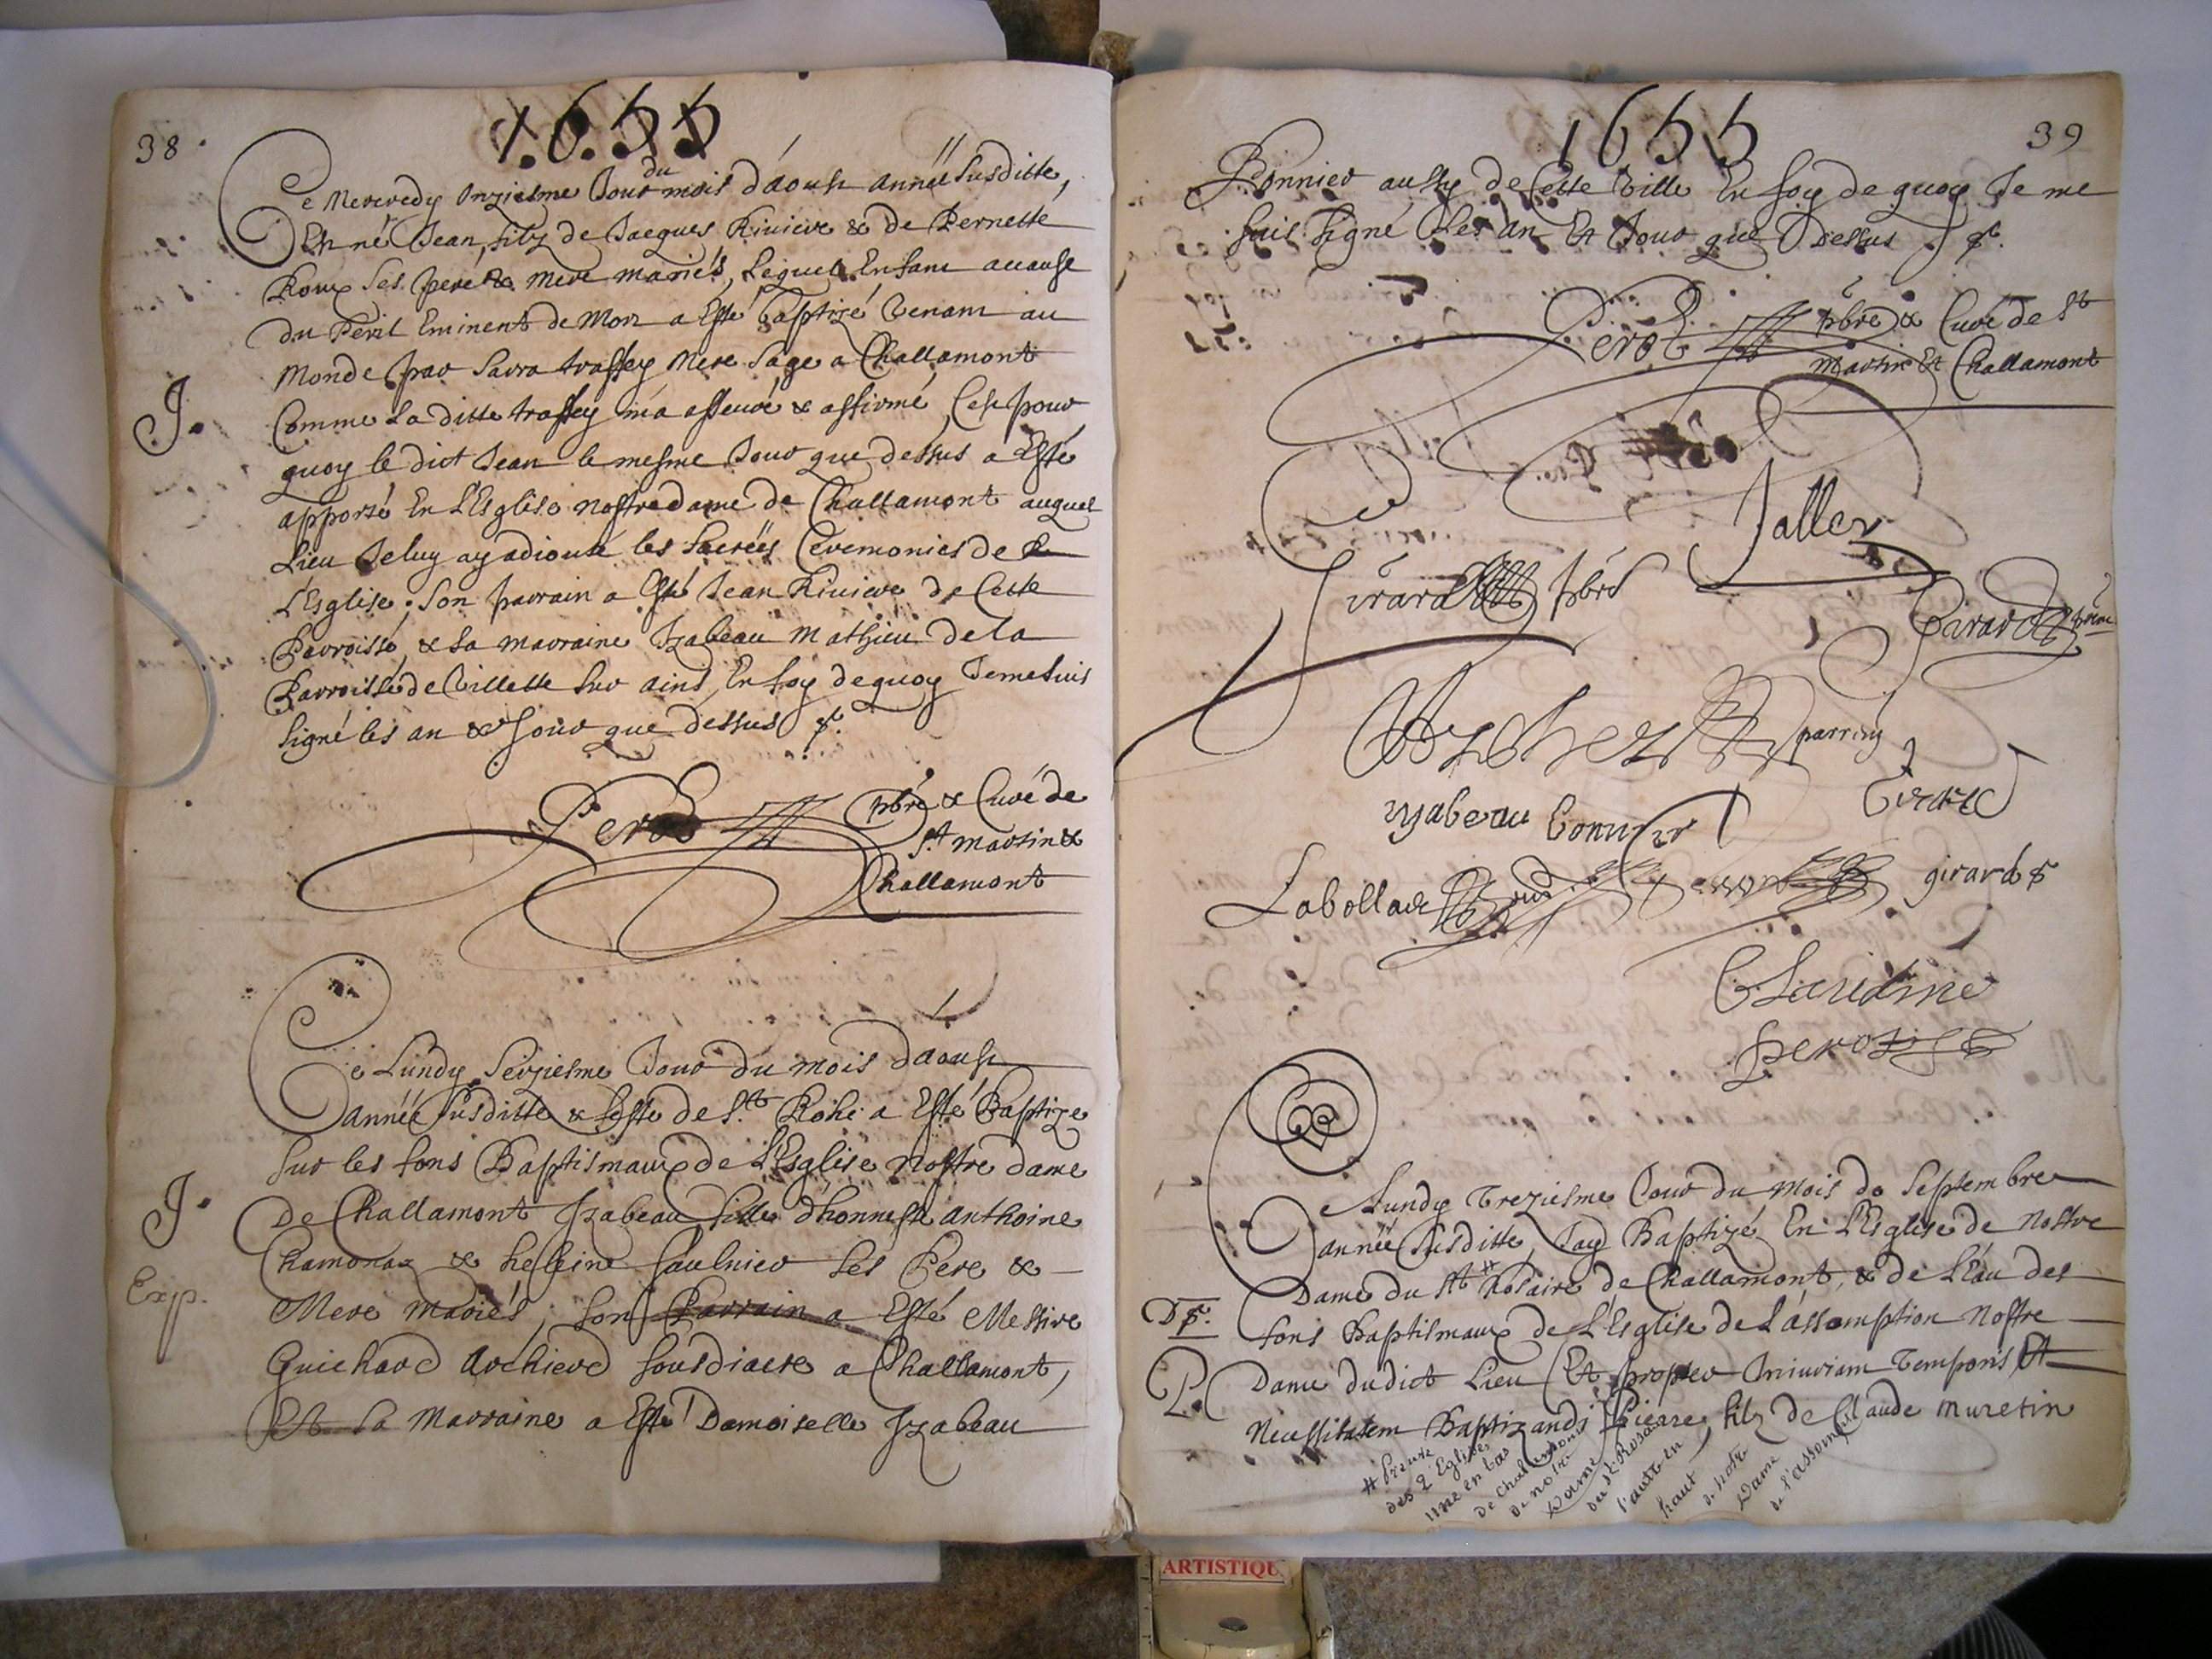 38.
1.6.5.5
Ce Mercredy Onziesme Jour du mois d'aoust année susditte,
Est né Jean, filz de Jacques Riviere & de Pernette
Roux ses pere & mere mariés, Lequel Enfant acause
du Peril Eminent de Mort a Esté baptizé Venant au
Monde par Sarra trassey Mere sage a Challamont
J.
Comme La ditte trassey m'a asseuré & affirmé, Cest pour
quoy le dict Jean le mesme Jour que dessus a Esté
apporté En L'Esglise nostre dame de Challamont auquel
Lieu Je luy ay adiouté les sacrées Ceremonies de
L'Esglise, Son parrain a Esté Jean Riviere de Cette
Parroisse, & sa marraine Izabeau Mathieu de la
Parroisse de Villette sur ains, En foy de quoy Je me suis
signé les an & Jour que dessus
Perot pbre & Curé de
St martin &
Challamont
Ce Lundy Seiziesme Jour du mois d'aoust
année susditte & feste de St. Roh a Esté Baptize
sur les fons Baptismaux de L'Esglise nostre dame
J.
De Challamont Izabeau fille d'honneste anthoine
Chamonaz & heleine saulnier ses Pere &
Exp.
Mere mariés, son Parrain a Esté Messire
Guichard Archierd sousdiacre a Challamont,
Et sa Marraine a Esté Damoiselle Izabeau
1655
39
Bonnier aussy de Cette Ville En foy de quoy Je me
suis signé Les an Et Jour que Dessus
Perot pbre & Curé de St
Martin Et Challamont
Jaller
Girard pbre
Girard
Archer parrin
Girard
ysabeau bonnier
Labollace
girard
Claudine
perot
Ce Lundy Treziesme Jour du Mois de Septembre
année susditte, J'ay Baptizé En L'Esglise de Nostre
Dame du St # Rosaire de Challamont, & de L'eau des
fons Baptismaux de L'Esglise de L'assomption Nostre
P.
Dame dudict Lieu Et propter Iniuriam Temporis Et
Necessitatem Baptizandi Pierre, filz de Claude Muretin
# Preuve
des 2 Eglises
une en bas
de Chalamont
de notre
Dame
du St Rosaire
l'autre en
haut
de notre
Dame
de l'assomption
ARTISTIQU